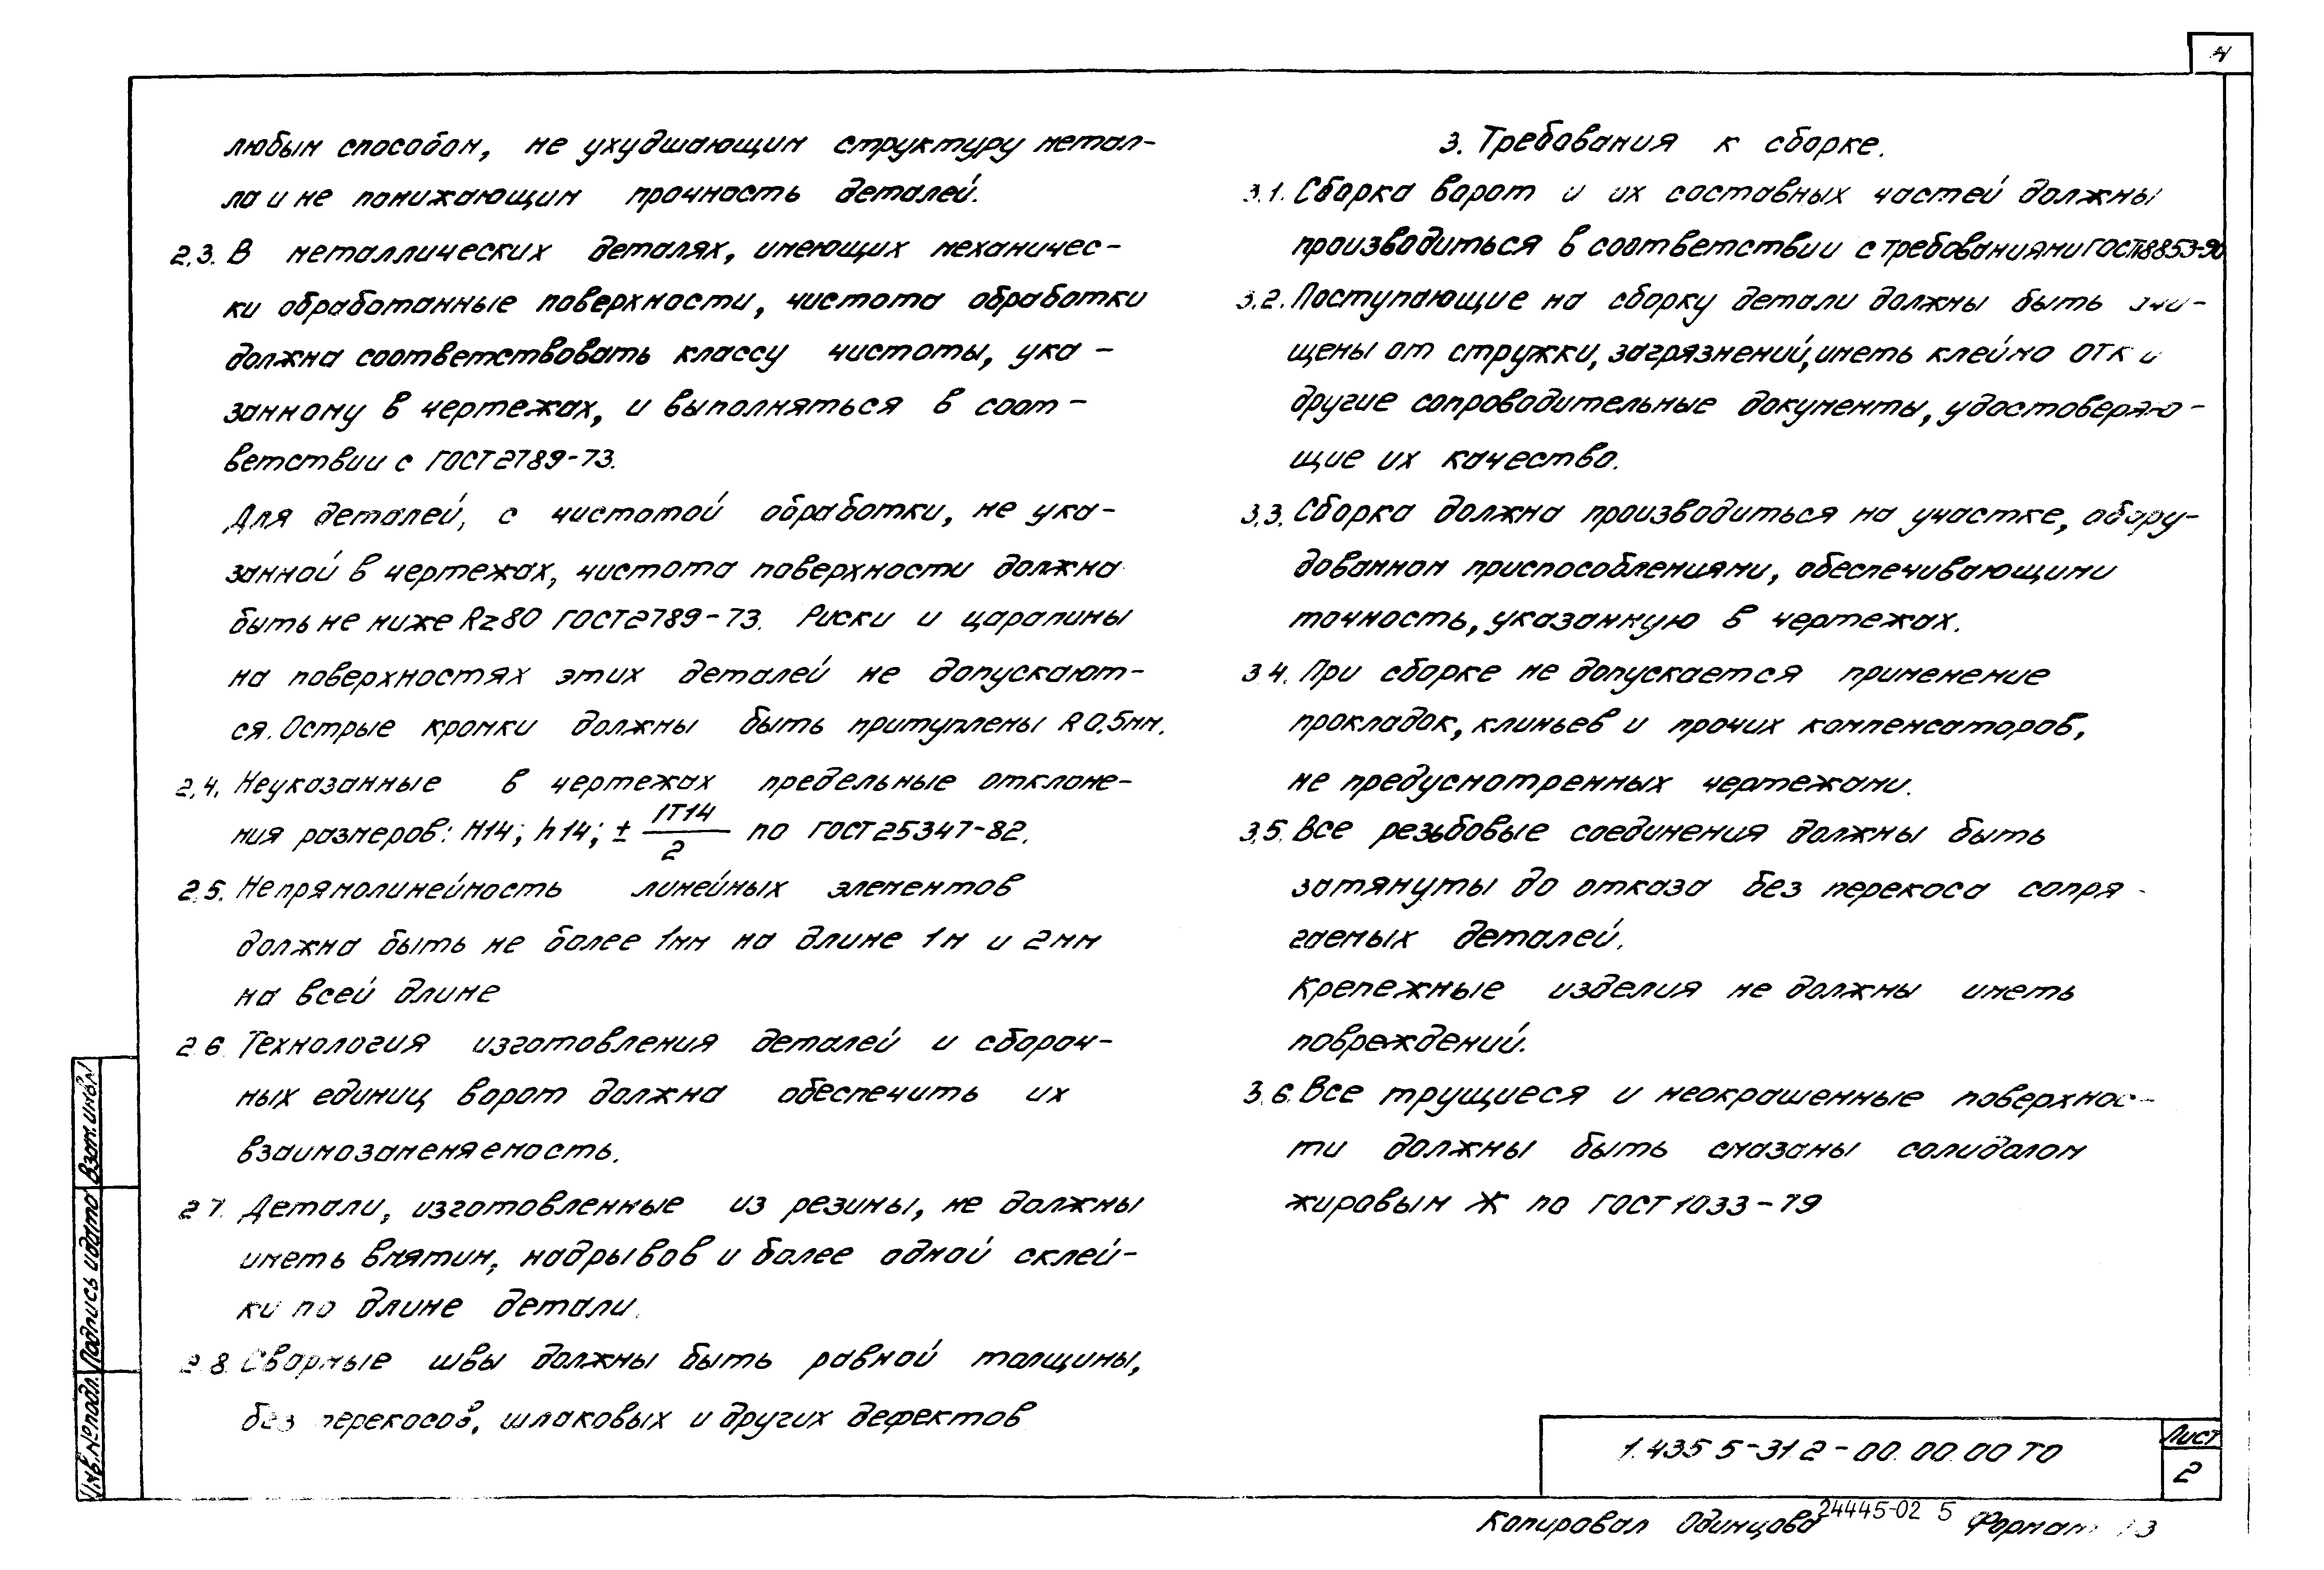 4
любым способом, не ухудшающим структуру метал-
ла и не понижающим прочность деталей.
2.3. В металлических деталях, имеющих механичес-
ки обработанные поверхности, чистота обработки
должна соответствовать классу чистоты, ука-
занному в чертежах, и выполняться в соот-
ветствии с ГОСТ 2789-73.
Для деталей, с чистотой обработки, не ука-
занной в чертежах, чистота поверхности должна
быть не ниже Rz80 ГОСТ 2789-73. Риски и царапины
на поверхностях этих деталей не допускают-
ся. Острые кромки должны быть притуплены R 0,5мм.
2.4. Неуказанные в чертежах предельные отклоне-
ния размеров: H14; h14; ± IT14/2 по ГОСТ 25347-82.
2.5. Непрямолинейность линейных элементов
должна быть не более 1мм на длине 1м и 2мм
на всей длине
2.6. Технология изготовления деталей и сбороч-
ных единиц ворот должна обеспечить их
взаимозаменяемость.
2.7. Детали, изготовленные из резины, не должны
иметь вмятин, надрывов и более одной склей-
ки по длине детали.
2.8. Сварные швы должны быть равной толщины,
без перекосов, шлаковых и других дефектов
3. Требования к сборке.
3.1. Сборка ворот и их составных частей должны
производиться в соответствии с требованиями ГОСТ18853-90
3.2. Поступающие на сборку детали должны быть
щены от стружки, загрязнений, иметь клеймо ОТК и
другие сопроводительные документы, удостоверяю-
щие их качество.
3.3. Сборка должна производиться на участке, обору-
дованном приспособлениями, обеспечивающими
точность, указанную в чертежах.
3.4. При сборке не допускается применение
прокладок, клиньев и прочих компенсаторов,
не предусмотренных чертежами.
3.5. Все резьбовые соединения должны быть
затянуты до отказа без перекоса сопря-
гаемых деталей.
Крепежные изделия не должны иметь
повреждений.
3.6. Все трущиеся и неокрашенные поверхнос-
ти должны быть смазаны солидолом
жировым Ж по ГОСТ 1033-79
Инв.№подл. Подпись и дата Взам.инв.№
1.435 5-31 2-00.00.00 ТО
Лист
2
Копировал Одинцова 24445-02 5 Формат А3